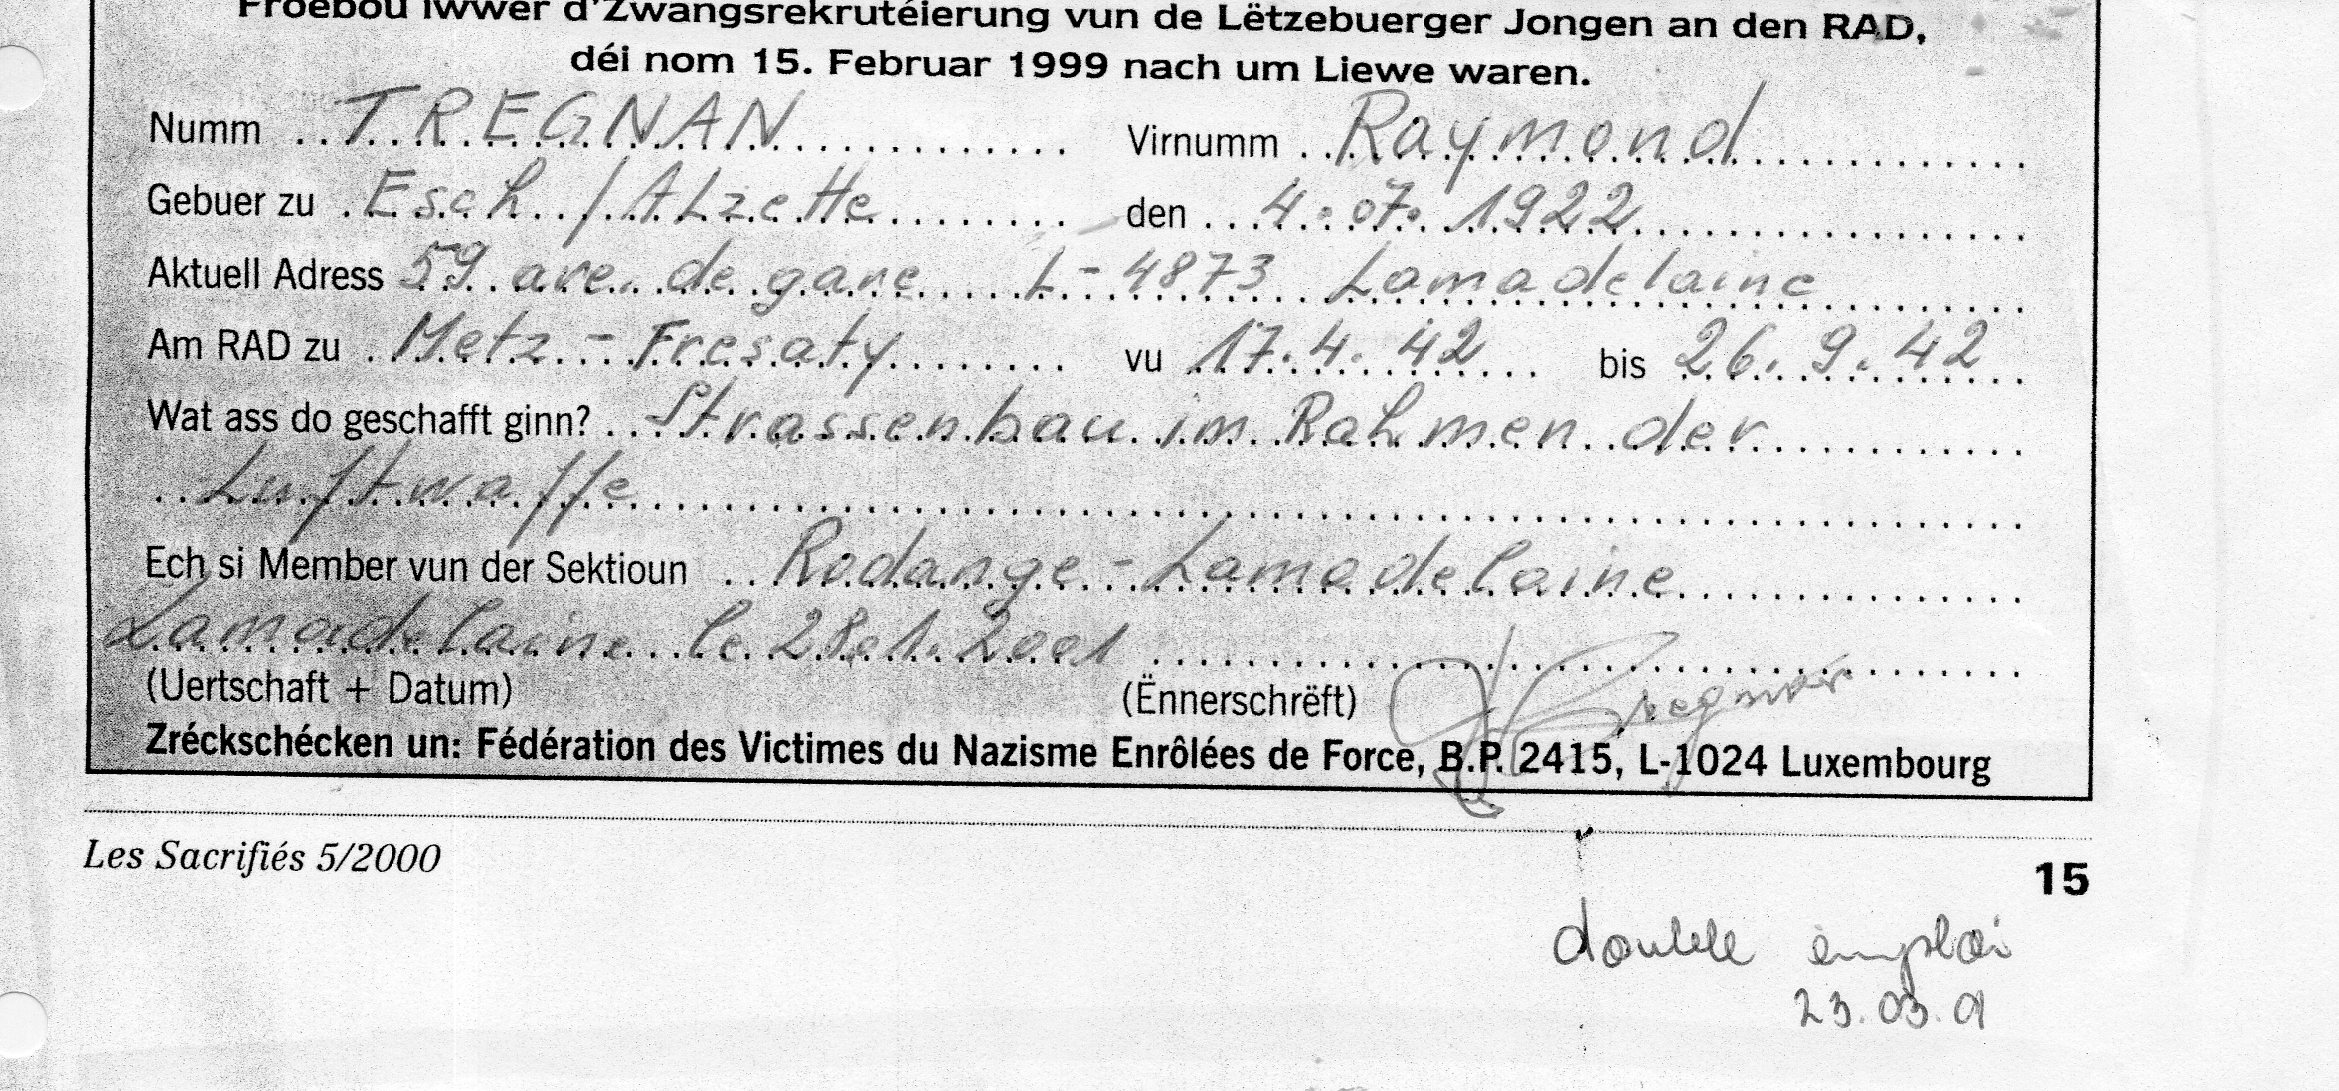 Froebou iwwer d'Zwangsrekrutéierung vun de Lëtzebuerger Jongen an den RAD,
déi nom 15. Februar 1999 nach um Liewe waren.
Numm TREGNAN Virnumm Raymond
Gebuer zu Esch/Alzette den 4.07.1922
Aktuell Adress 59 ave. de gare L-4873 Lamadelaine
Am RAD zu Metz-Fresaty vu 17.4.42 bis 26.9.42
Wat ass do geschafft ginn? Strassenbau im Rahmen der
Luftwaffe
Ech si Member vun der Sektioun Rodange-Lamadelaine
Lamadelaine le 28.1.2001
(Uertschaft + Datum) (Ënnerschrëft) Tregnan
Zréckschécken un: Fédération des Victimes du Nazisme Enrôlées de Force, B.P. 2415, L-1024 Luxembourg
Les Sacrifiés 5/2000 15
double emploi
23.03.01